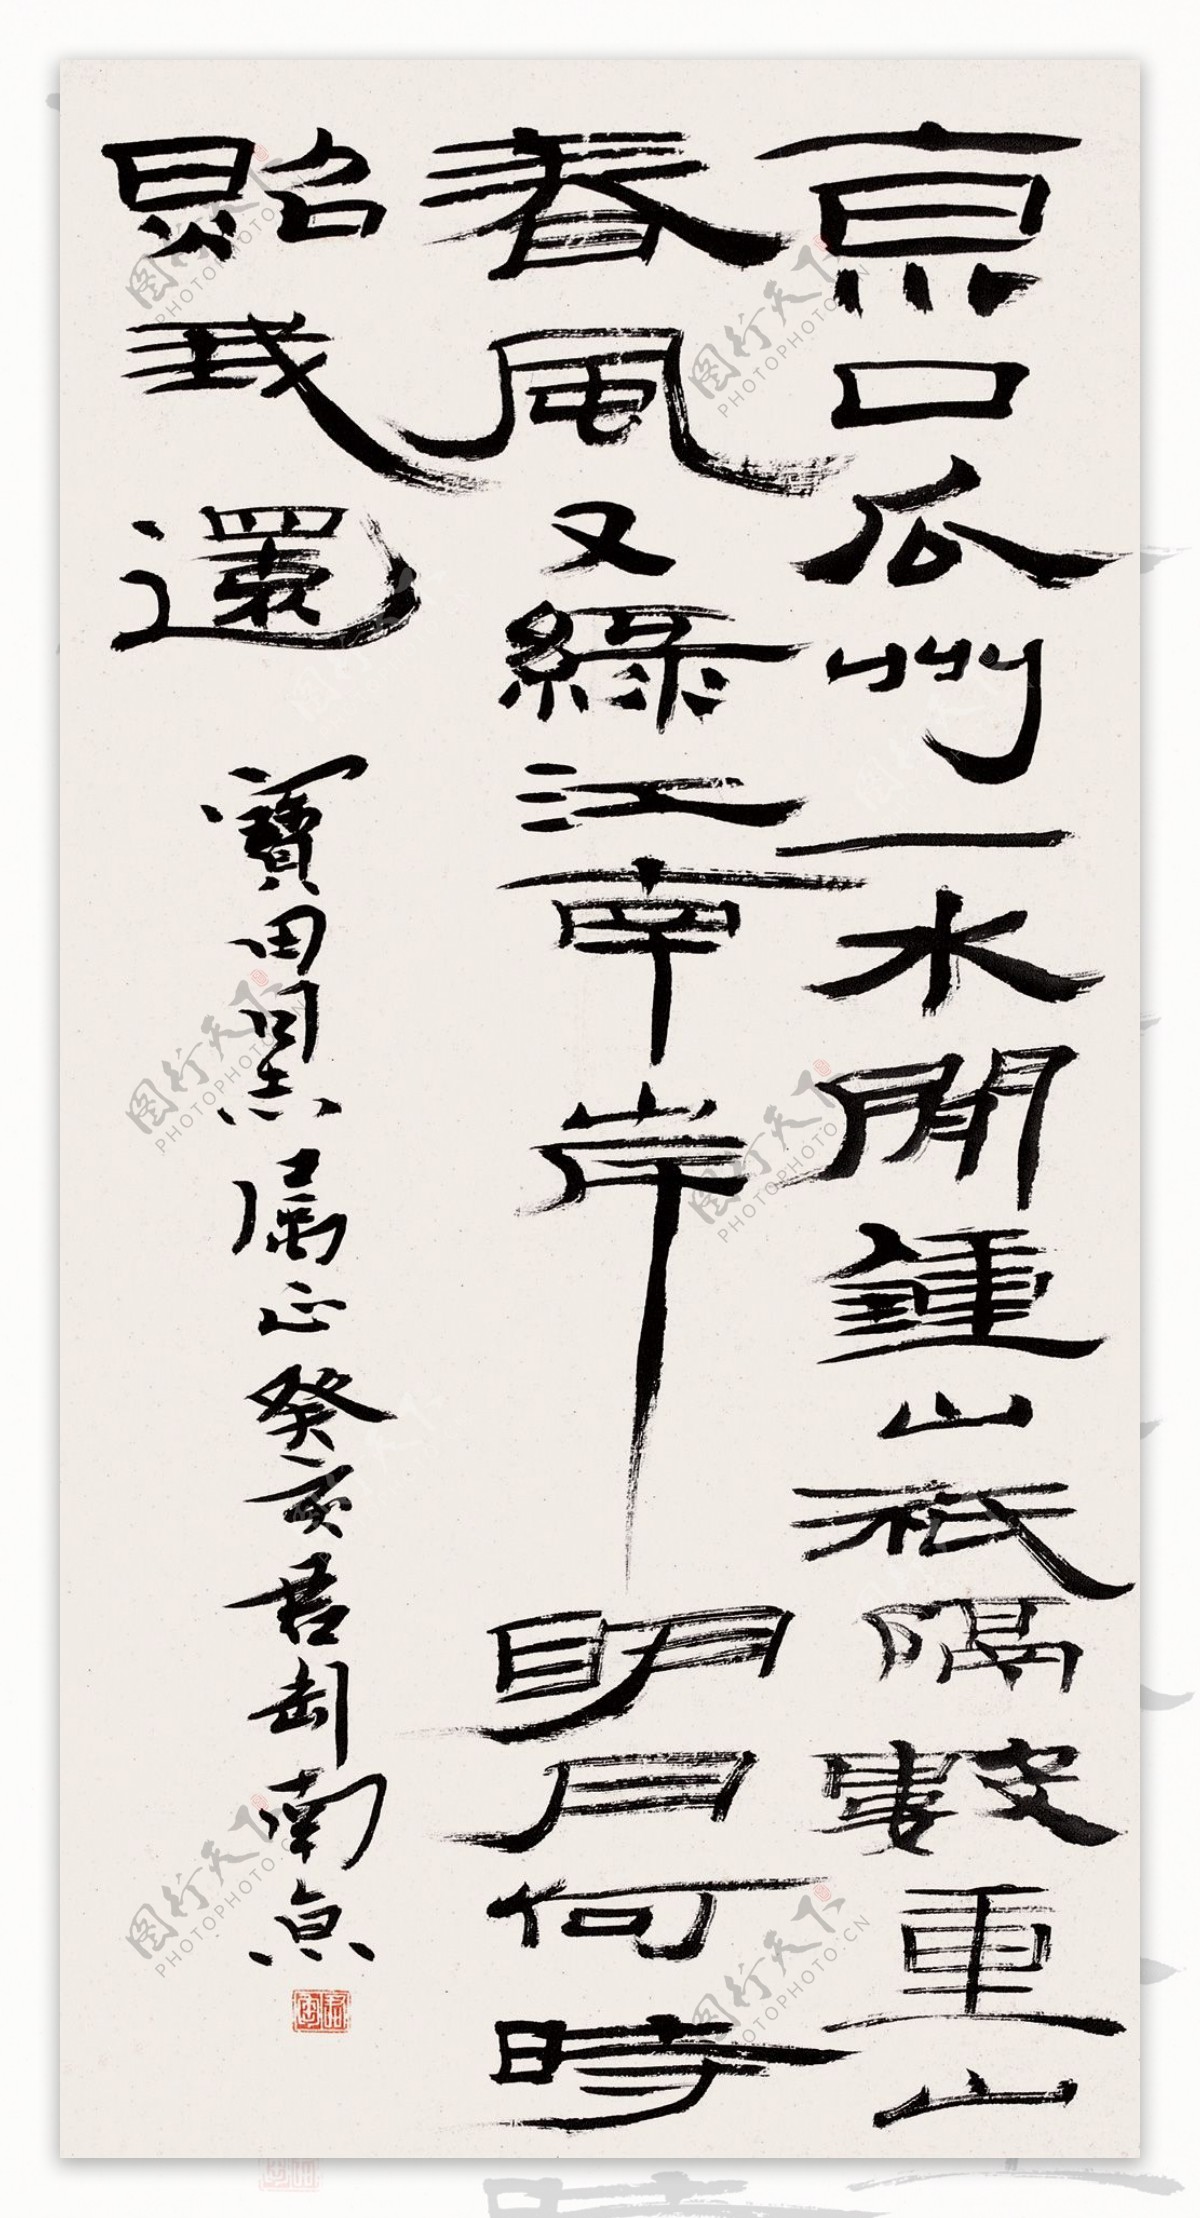 亰口瓜州一水間鍾山祇隔數重山
春風又綠江南岸明月何時
照我還
寶田同志属正癸亥君匋南亰
图行天下
PHOTOPHOTO.CN